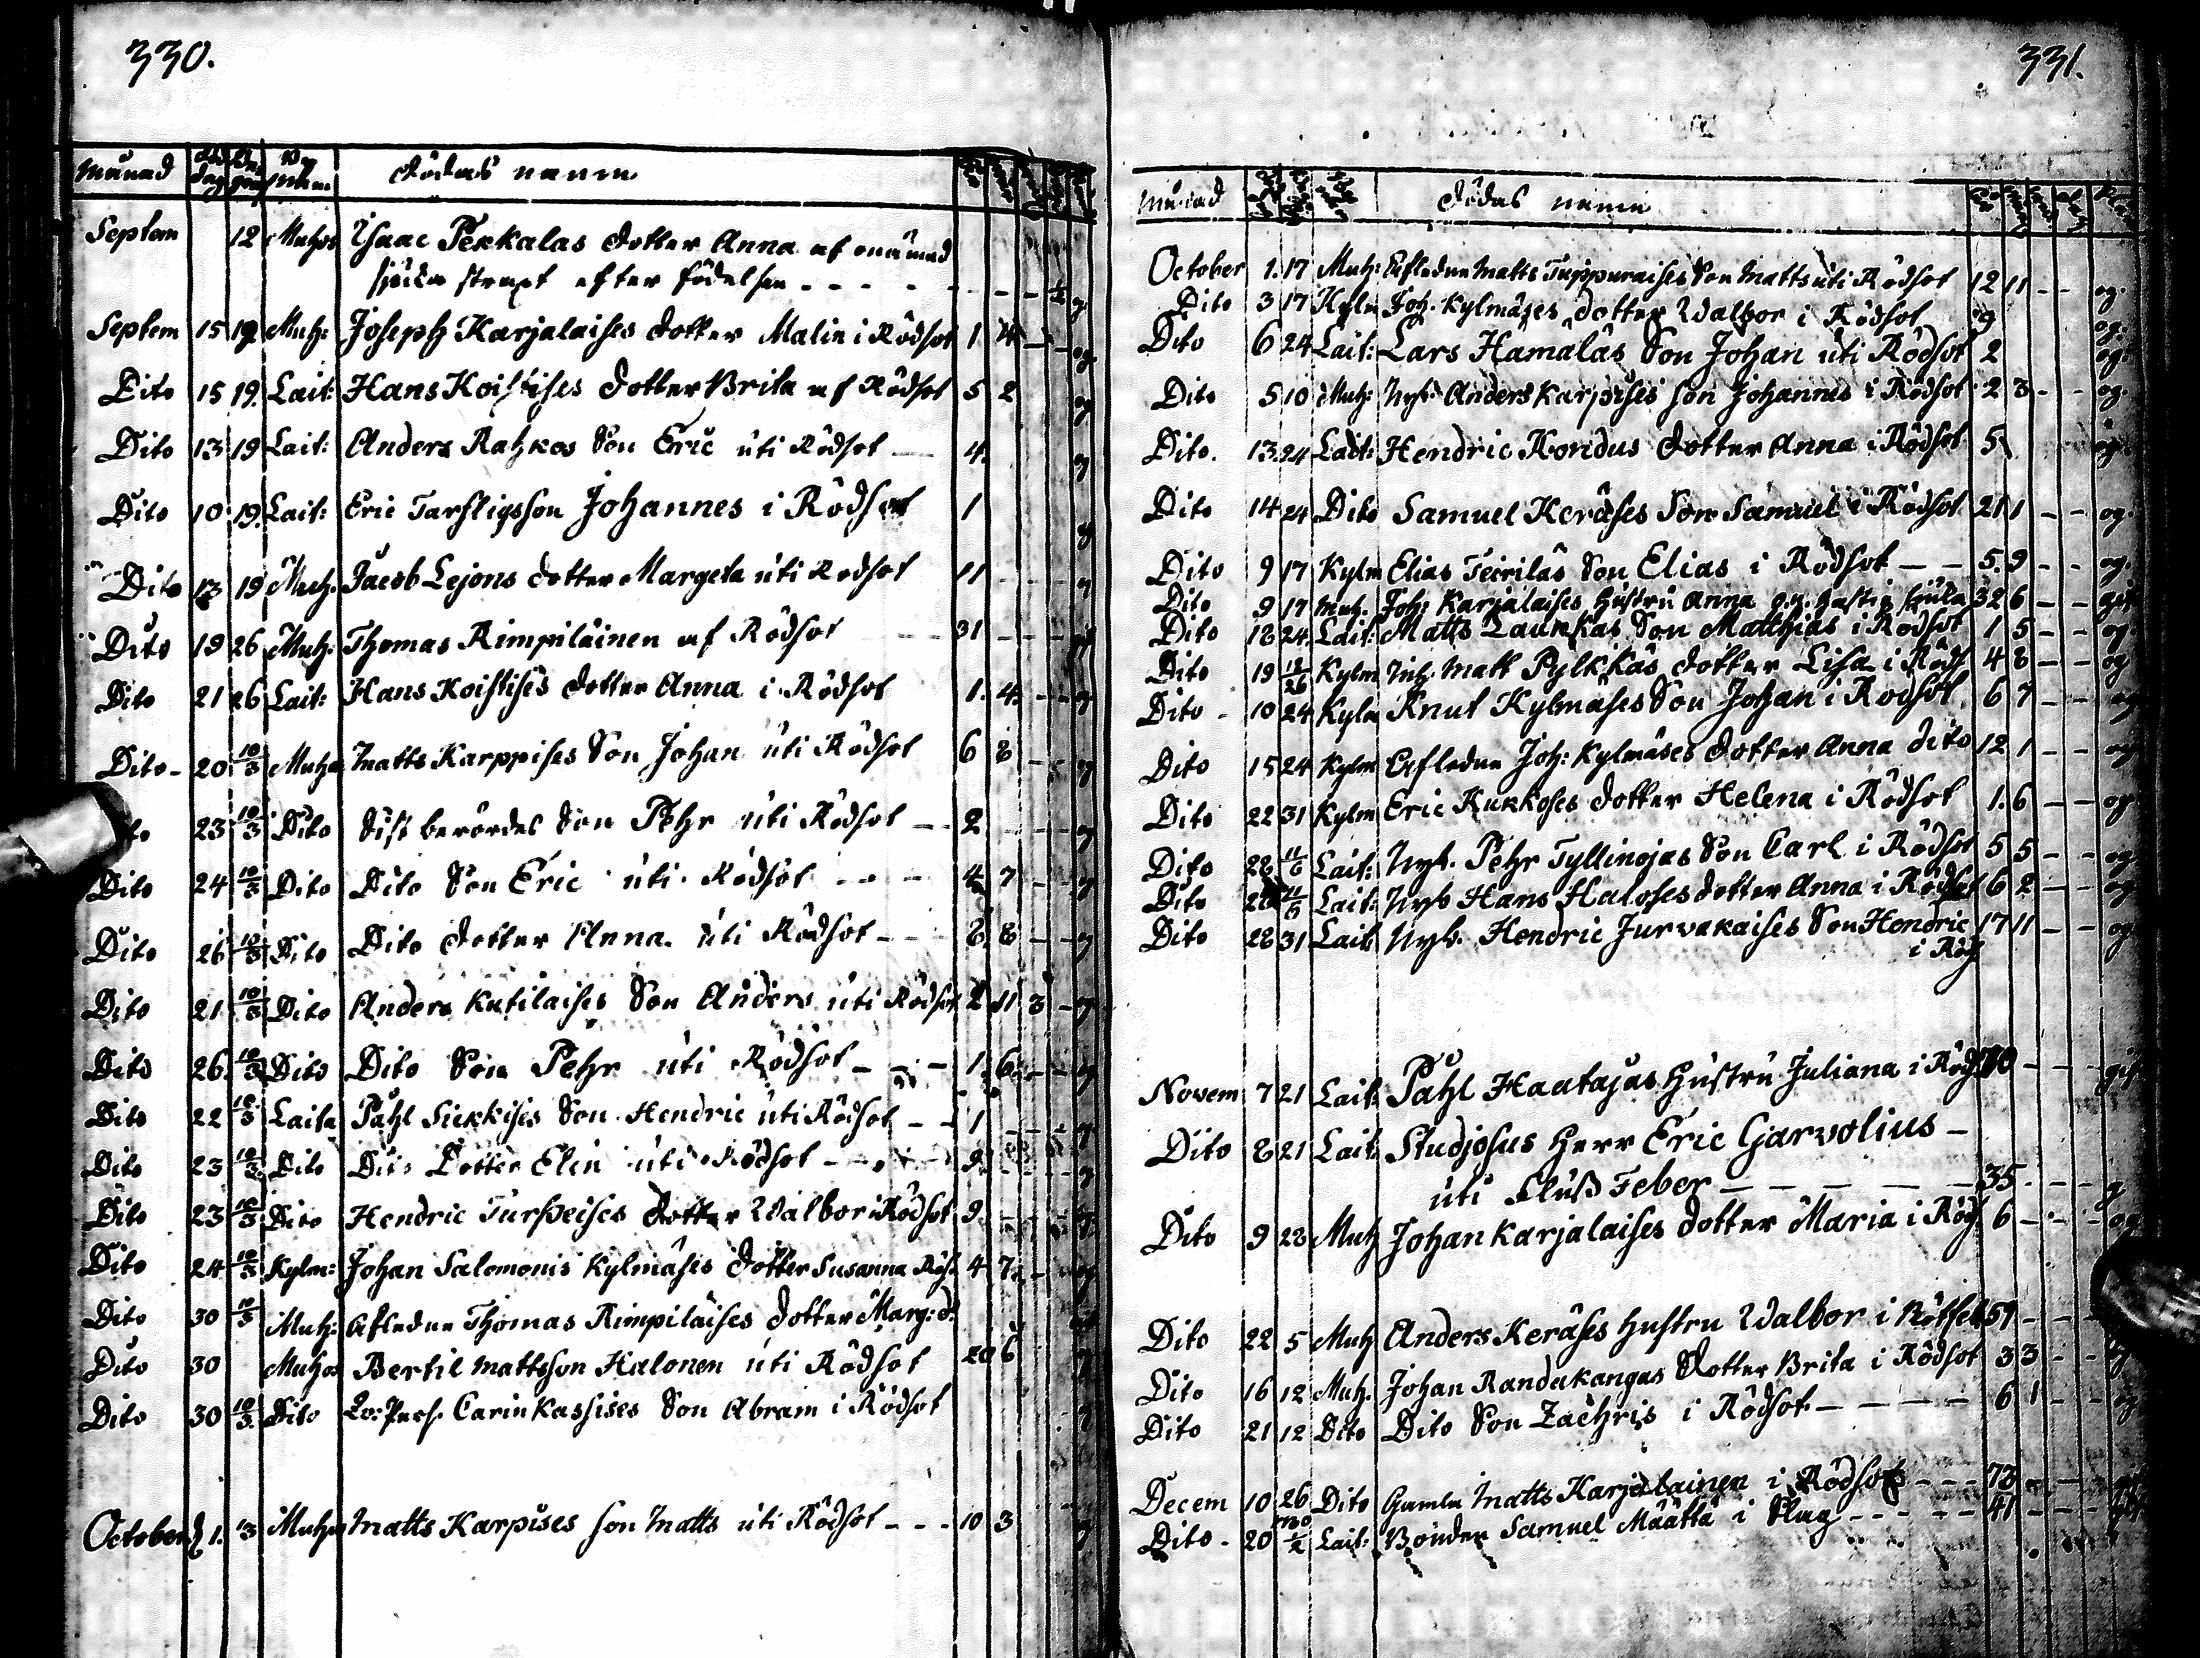 330.
Månad dödas namn
Septem 12 Muhos Isaac Pekkalas dotter Anna af onämnd
sjuka straxt efter födelsen - - - - - - ½ og
Septem 15 19 Muh: Joseph Karjalaises dotter Malin i Rödsot 1 4 - - og
Dito 15 19. Lait: Hans Koistises dotter Brita af Rödsot 5 2 og
Dito 13 19 Lait: Anders Rahkos Son Eric uti Rödsot - - 4. og
Dito 10 19. Lait: Eric Tarfligsson Johannes i Rödsot 1 og
Dito 13 19 Muh. Jacob Lejons dotter Margeta uti Rödsot 11 - - - og
Dito 19 26 Muh: Thomas Rimpiläinen af Rödsot - - 31 - - - gift
Dito 21 26 Lait: Hans Koistises dotter Anna i Rödsot 1. 4. - - og
Dito - 20 10/3 Muhos Matts Karppises Son Johan uti Rödsot 6 8 - - og
Dito 23 10/3 Dito Sist berördes Son Pehr uti Rödsot - - 2 - - - og
Dito 24 10/3 Dito Dito Son Eric uti Rödsot - - - 4 7 - - og
Dito 26 10/3 Dito Dito dotter Anna uti Rödsot - - - 8. 8 - - og
Dito 21 10/3 Dito Anders Kutilaises Son Anders uti Rödsot 2 11 3 - og
Dito 26. 10/3 Dito Dito Son Pehr uti Rödsot - - - 1. 6. - - og
Dito 22 10/3 Laita Påhl Siekkises Son Hendric uti Rödsot - - 1 - - - og
Dito 23 10/3 Dito Dito Dotter Elin uti Rödsot - - - 9. - - - og
Dito 23 10/3 Dito Hendric Turpeises dotter Walbor i Rödsot 9. - - - og
Dito 24 10/3 Kylm: Johan Salomonis Kylmäses dotter Susanna Röds. 4 7. - - og
Dito 30 10/3 Muh: Afledne Thomas Rimpiläises dotter Marg: d:
Dito 30 Muhos Bertil Mattsson Halonen uti Rödsot 20 6 og
Dito 30 10/3. Dito Qv: Pers. Carin Kassises Son Abram i Rödsot og
October d 1. 3 Muhos Matts Karpises son Matts uti Rödsot - - - 10 3 og
331.
Månad dödas namn
October 1. 17 Muh: Afledne Matts Tuppuraises Son Matts uti Rödsot 12 11 - - og.
Dito 3 17 Kylm Joh. Kylmäses dotter Walbor i Rödsot 9 og.
Dito 6 24 Lait: Lars Hamaläs Son Johan uti Rödsot 2 og.
Dito 5 10 Muh: Nyb. Anders Karpises son Johannes i Rödsot 2 3 - - og.
Dito. 13. 24 Lait: Hendric Kondus dotter Anna i Rödsot 5 og.
Dito 14 24 Dito Samuel Keräses Son Samuel i Rödsot 21 1 - - og.
Dito 9 17 Kylm Elias Teiriläs Son Elias i Rödsot - - 5. 9 - - og.
Dito 9 17 Muh. Joh: Karjalaises hustru Anna hastig sjuka 32 6 - - gift
Dito 18 24. Lait: Matts Launkas Son Matthias i Rödsot 1 5 - - og.
Dito 19 12/26 Kylm Inh. Matt Pylkkäs dotter Lisa i Röds 4 8 - - og
Dito - 10 24 Kylm Knut Kylmäses Son Johan i Rödsot 6 7 - - og
Dito 15 24 Kylm Afledne Joh: Kylmäses dotter Anna dito 12 1 - - og
Dito 22 31 Kylm Eric Kukkoses dotter Helena i Rödsot 1. 6 - - og
Dito 28 11/6 Lait: Nyb. Pehr Tyllinojas Son Carl i Rödsot 5 5 - - og
Dito 11/6 Lait: Nyb Hans Haloses dotter Anna i Rödsot 6 2 - - og
Dito 28 31 Lait: Nyb. Hendric Jurvakaises Son Hendric 17 11 - - og
i Röds
Novem 7 21 Lait: Påhl Haatajas Hustru Juliana i Röds 70 - - - gift
Dito 8 21 Lait: Studjosus Herr Eric Garvolius -
uti Fluß Feber - - - - - - 35 - - - og
Dito 9 28 Muh Johan Karjalaises dotter Maria i Röds. 6 - - - og
Dito 22 5 Muh Anders Keräses hustru Walbor i Rötfeb 59 - - -
Dito 16 12 Muh. Johan Randakangas Dotter Brita i Rödsot 3 3 - - og
Dito 21 12 Dito Dito Son Zachris i Rödsot - - - - 6 1 - - og
Decem 10 26 Dito Gamla Matts Karjalainen i Rödsot - - - 73 - - - gift
Dito - 20 Lait: Bonden Samuel Määttä i Slag - - - - 41 - - - gift